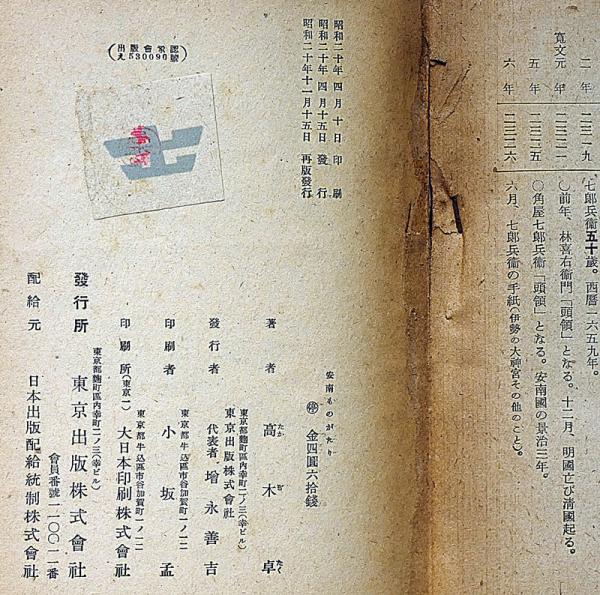 二年 二三一九 七郎兵衞五十歲。西曆一六五九年。
寬文元年 二三二一 〇前年、林喜右衞門「頭領」となる。十二月、明國亡び淸國起る。
五年 二三二五 〇角屋七郎兵衞「頭領」となる。安南國の景治三年。
六年 二三二六 六月、七郎兵衞の手紙(伊勢の大神宮その他のこと)。
昭和二十年四月十日印刷
昭和二十年四月十五日發行
昭和二十年十一月十五日再版發行
(出版會承認
え530090號)
安南ものがたり
㊞ 金四圓六拾錢
著者 高木卓
たか ぎ たく
東京都麴町區內幸町二ノ三(幸ビル)
東京出版株式會社
發行者 代表者 增永善吉
東京都牛込區市谷加賀町一ノ一二
印刷者 小坂孟
東京都牛込區市谷加賀町一ノ一二
印刷所(東京一) 大日本印刷株式會社
東京都麴町區內幸町二ノ三(幸ビル)
發行所 東京出版株式會社
會員番號一一〇〇一一番
配給元 日本出版配給統制株式會社